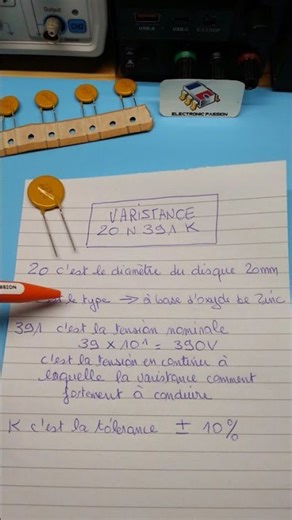 Output
CH2
ELECTRONIC PASSION
VARISTANCE
20 N 391 K
20 c'est le diamètre du disque 20mm
SSION
le type → à base d'oxyde de Zinc
391 c'est la tension nominale
39 x 10¹ = 390V
c'est la tension en continu à
laquelle la varistance comment
fortement à conduire
K c'est la tólérance ± 10%